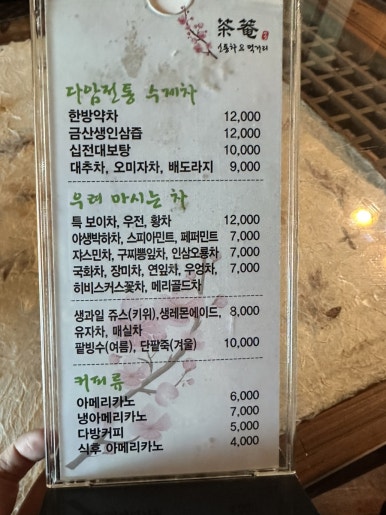 茶菴
전통차 & 먹거리
다암전통 수제차
한방약차 12,000
금산생인삼즙 12,000
십전대보탕 10,000
대추차, 오미자차, 배도라지 9,000
우려 마시는 차
특 보이차, 우전, 황차 12,000
야생박하차, 스피아민트, 페퍼민트 7,000
쟈스민차, 구찌뽕잎차, 인삼오룡차 7,000
국화차, 장미차, 연잎차, 우엉차, 7,000
히비스커스꽃차, 메리골드차
생과일 쥬스(키위),생레몬에이드, 8,000
유자차, 매실차
팥빙수(여름), 단팥죽(겨울) 10,000
커피류
아메리카노 6,000
냉아메리카노 7,000
다방커피 5,000
식후 아메리카노 4,000